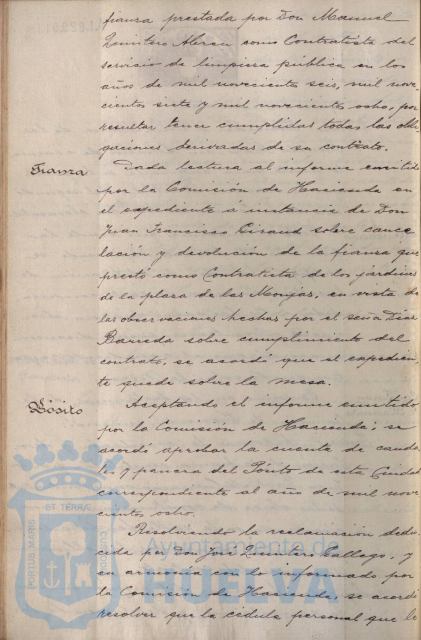 fianza prestada por Don Manuel
Quintero Alezan como Contratista del
servicio de limpieza pública en los
años de mil novecientos seis, mil nove-
cientos siete y mil novecientos ocho, por
resultar tener cumplidas todas las obli-
gaciones derivadas de su contrato.
Fianza
Dada lectura al informe emitido
por la Comisión de Hacienda en
el expediente á instancia de Don
Juan Francisco Giraud sobre cance-
lación y devolución de la fianza que
prestó como Contratista de los jardines
de la plaza de las Monjas, en vista de
las observaciones hechas por el señor Diaz
Barreda sobre cumplimiento del
contrato, se acordó que el expedien-
te quede sobre la mesa.
Pósito
Aceptando el informe emitido
por la Comisión de Hacienda; se
acordó aprobar la cuenta de cauda-
les y panera del Pósito de esta Ciudad
correspondiente al año de mil nove-
cientos ocho.
Resolviendo la reclamación dedu-
cida por Don José Quintero Gallego, y
en armonía con lo informado por
la Comisión de Hacienda, se acordó
resolver que la cédula personal que le
ET TERRÆ
PORTUS MARIS
CUSTODIA
Ayuntamiento de
HUELVA